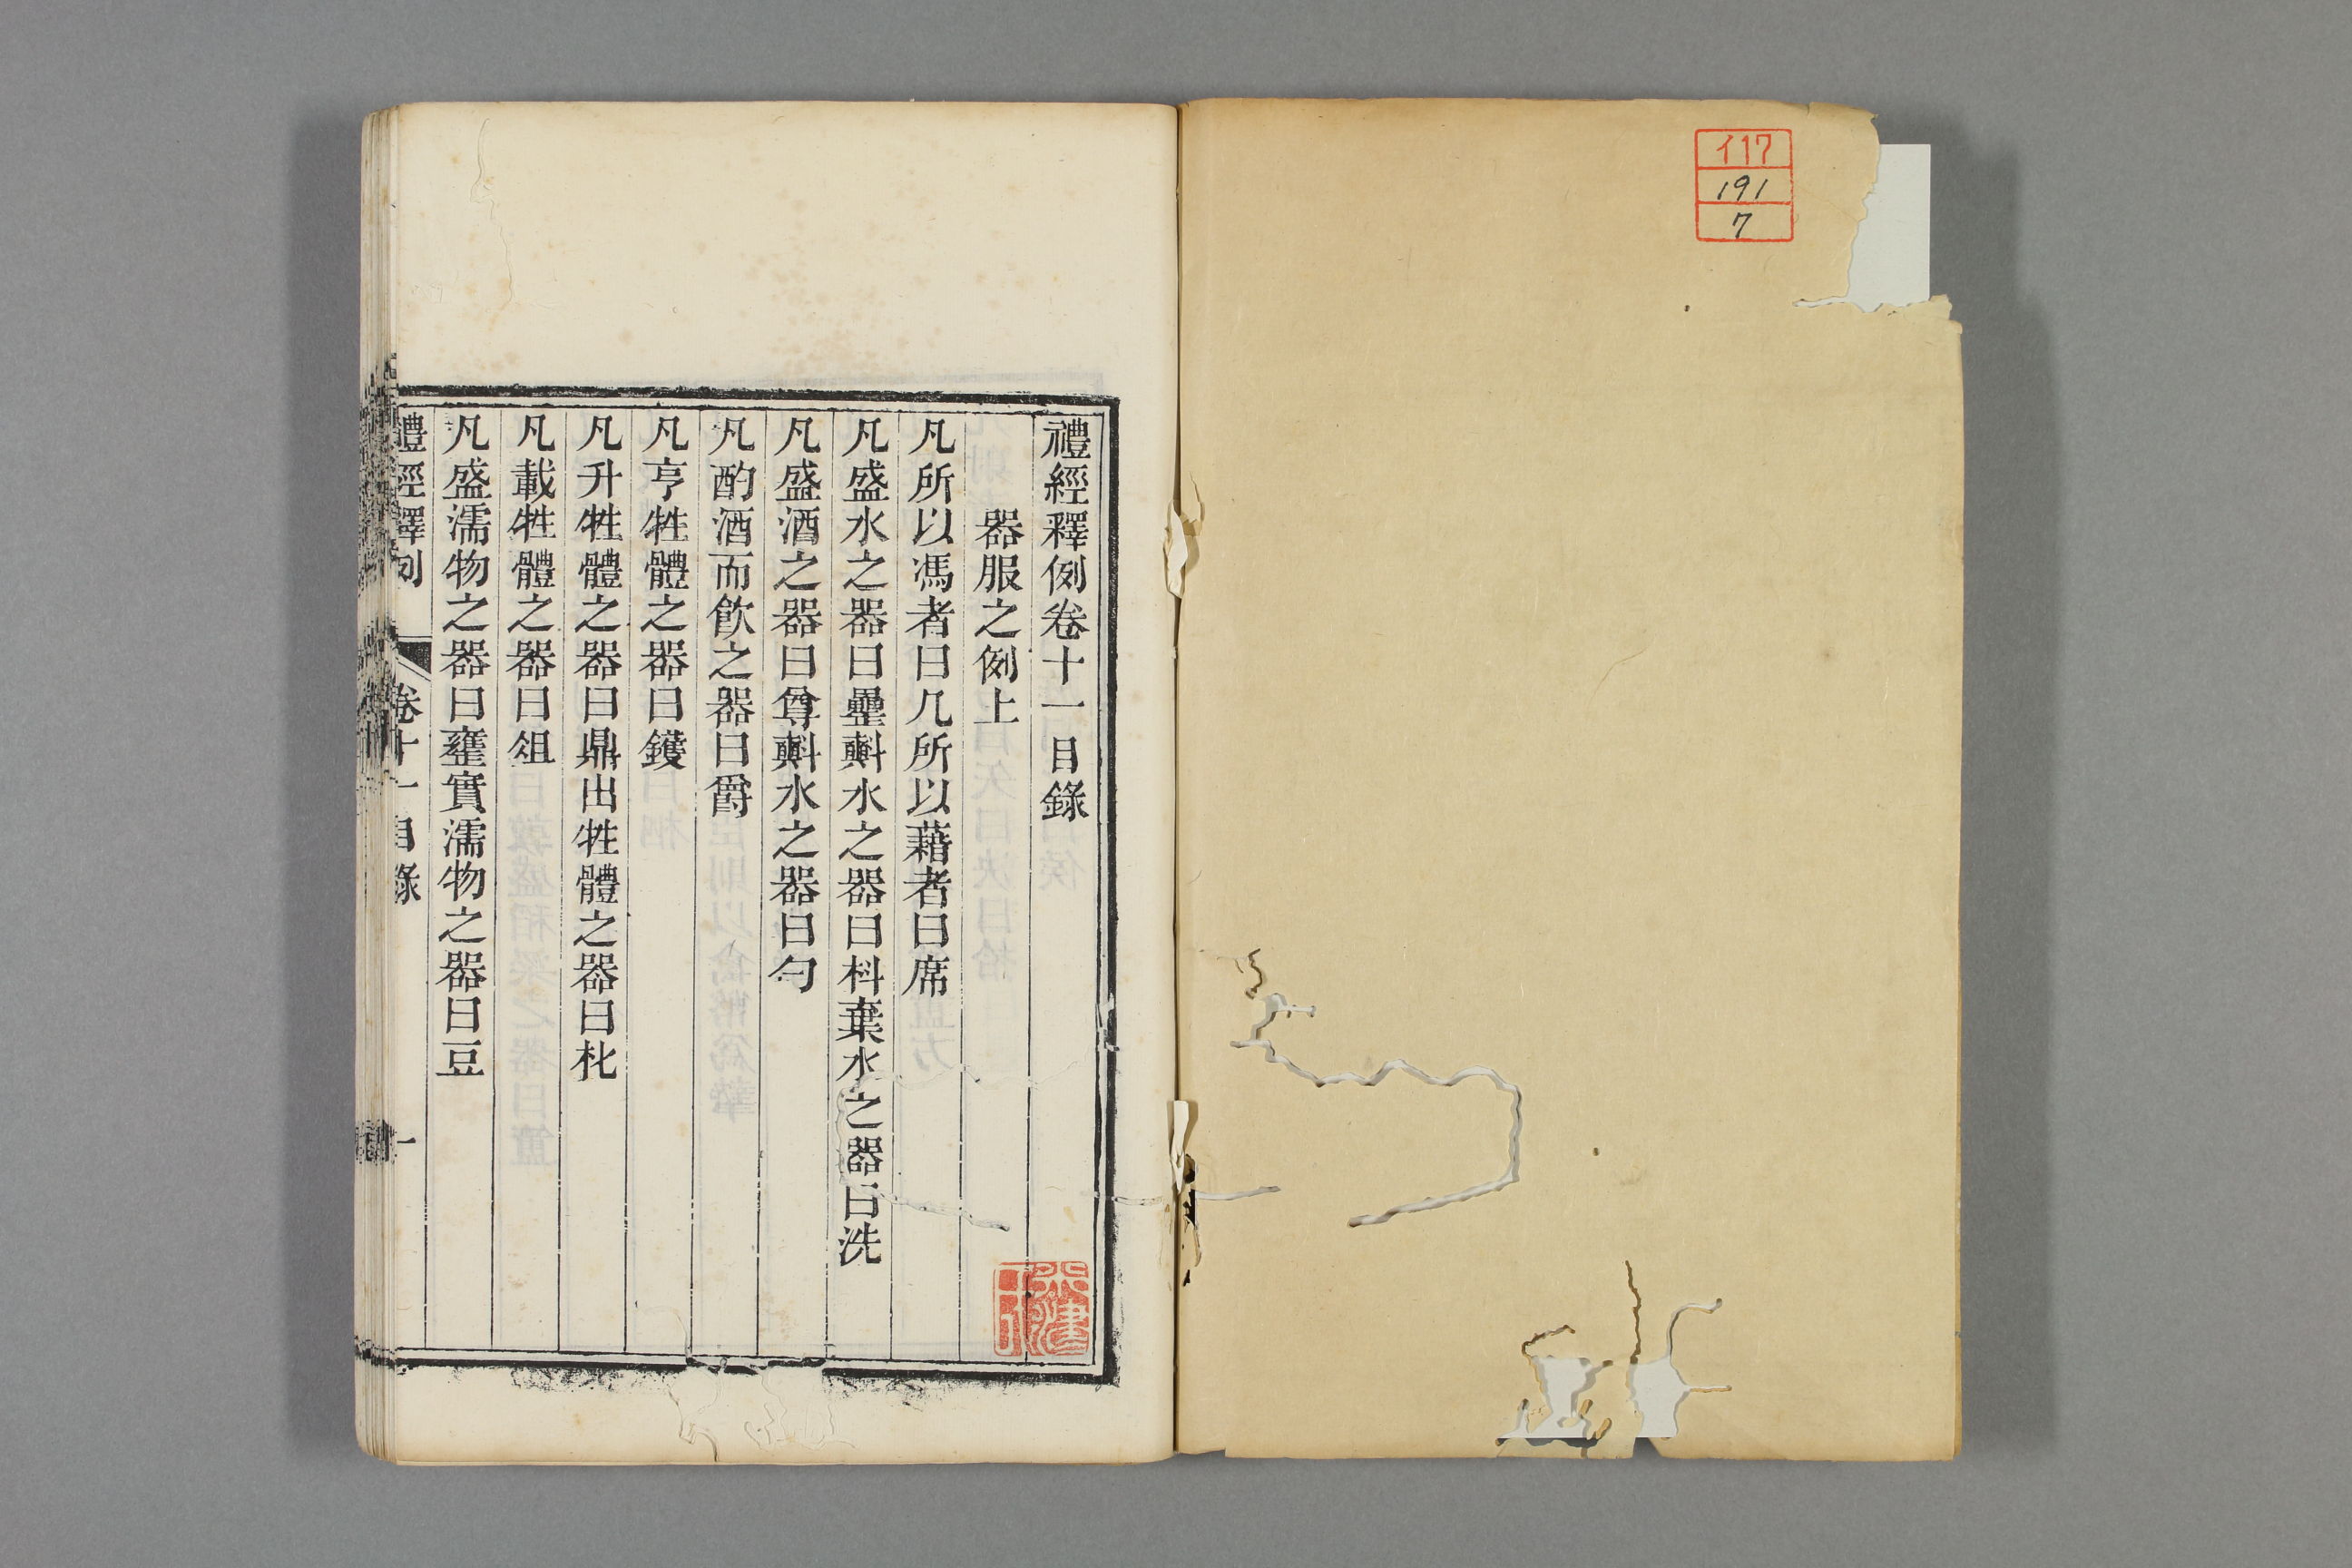 イ17
191
7
禮經釋例卷十一目錄
器服之例上
凡所以馮者曰几所以藉者曰席
凡盛水之器曰罍𣂏水之器曰枓棄水之器曰洗
凡盛酒之器曰尊𣂏水之器曰勺
凡酌酒而飮之器曰爵
凡亨牲體之器曰鑊
凡升牲體之器曰鼎出牲體之器曰朼
凡載牲體之器曰俎
凡盛濡物之器曰瓽實濡物之器曰豆
禮經釋例 卷十一目錄 一